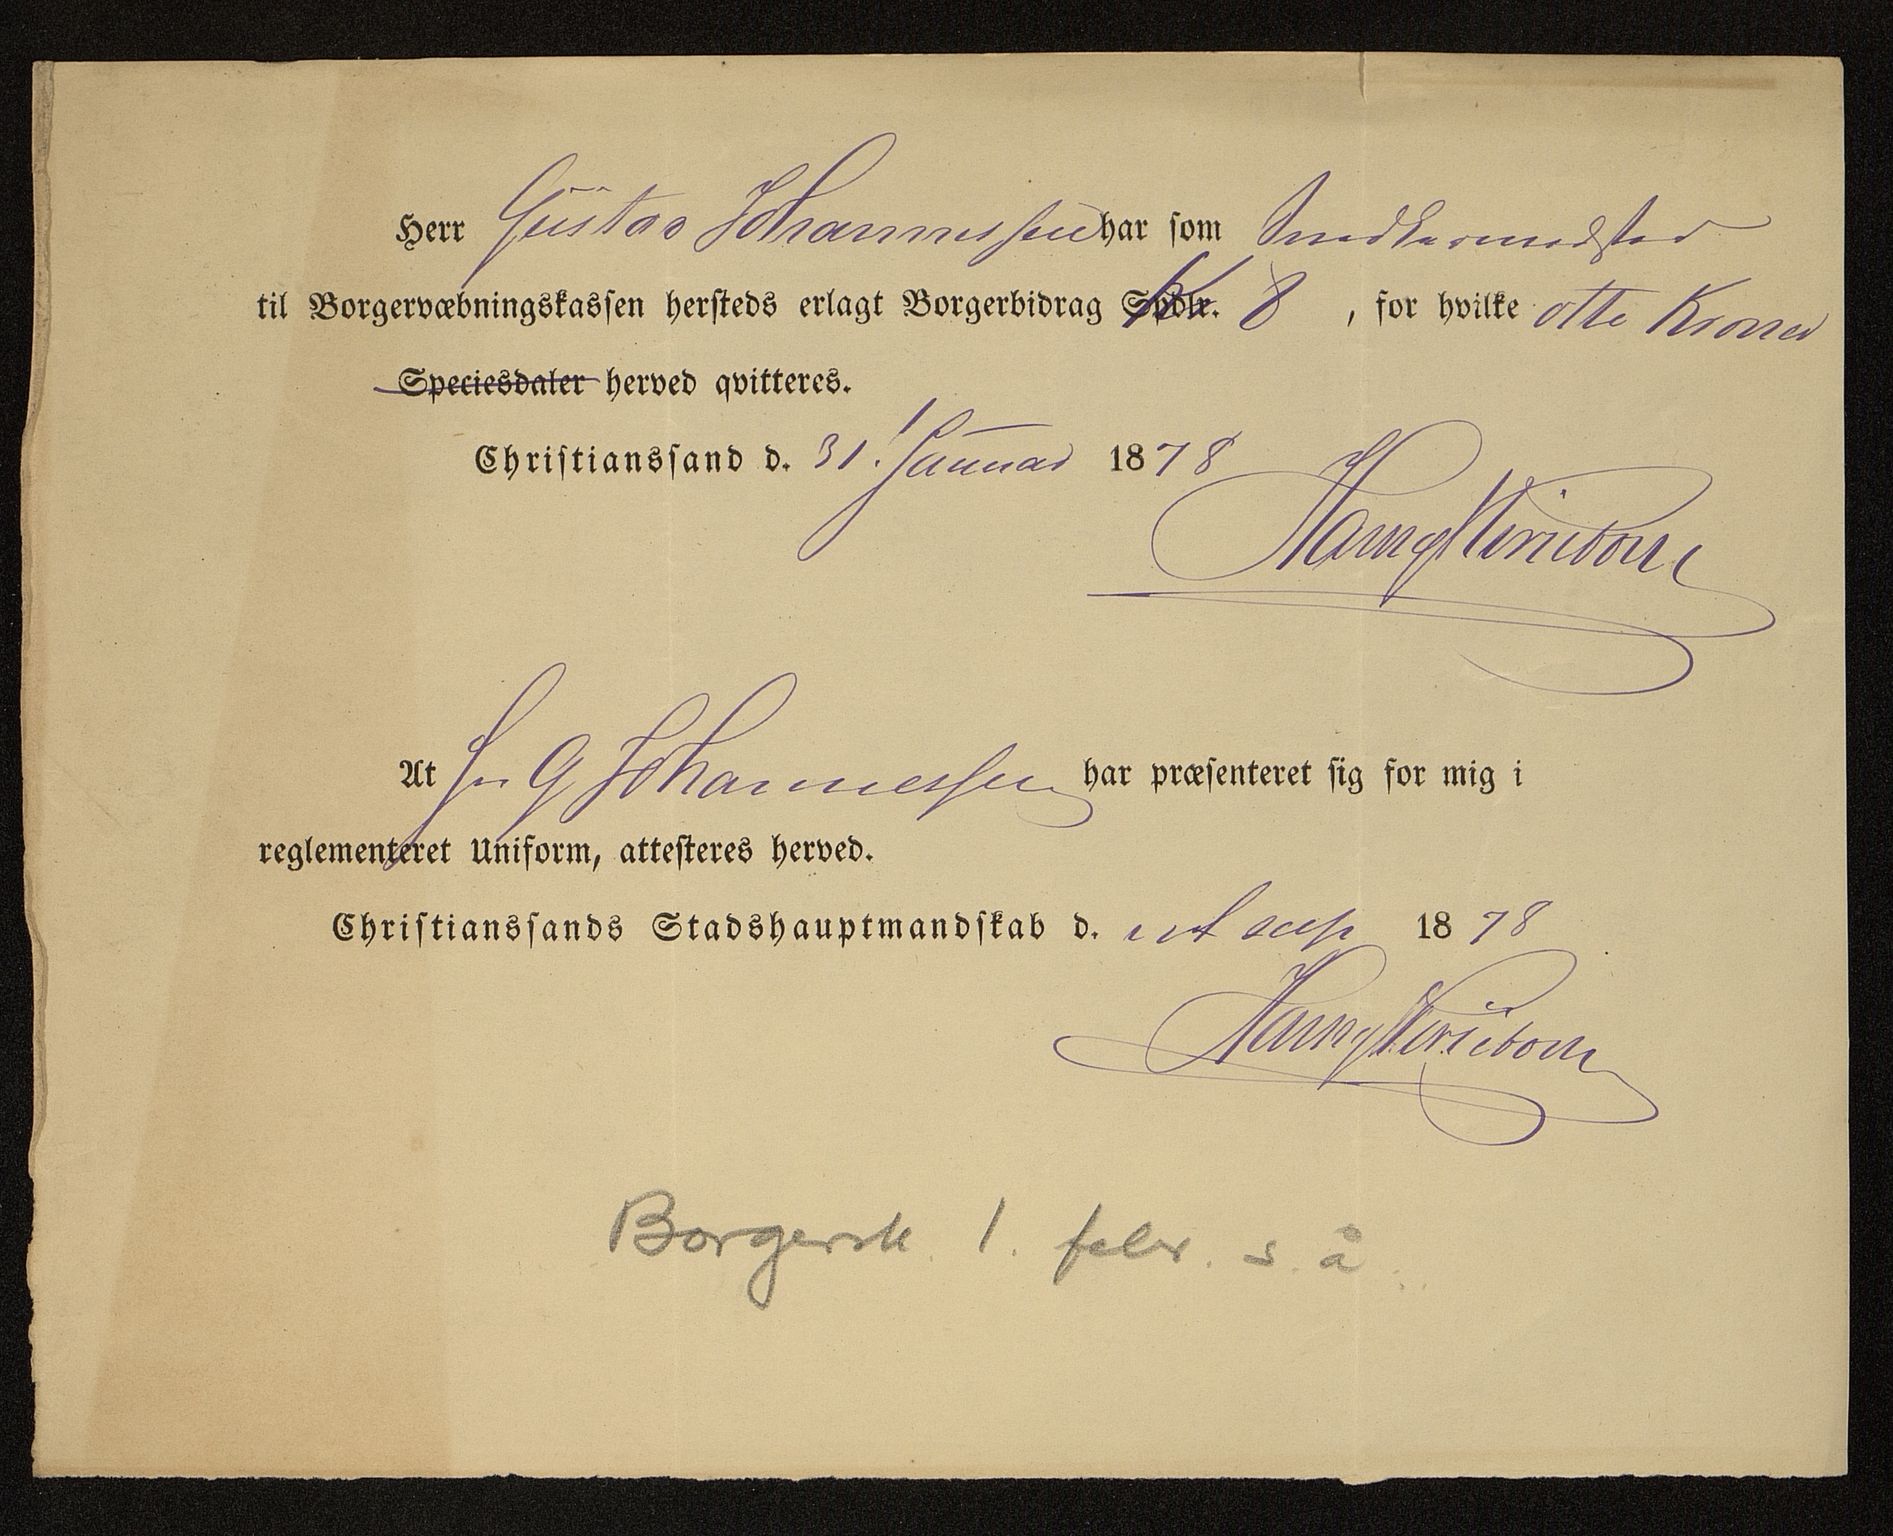 Herr Gustav Johannessen har som Snedkermester
til Borgervæbningskassen hersteds erlagt Borgerbidrag Spdlr. Kr 8 , for hvilke otte Kroner
Speciesdaler herved qvitteres.
Christianssand d. 31. Januar 1878
At Hr G Johannessen har præsenteret sig for mig i
reglementeret Uniform, attesteres herved.
Christianssands Stadshauptmandskab d. ut sup 1878
Borgersk. 1. febr. s. å.